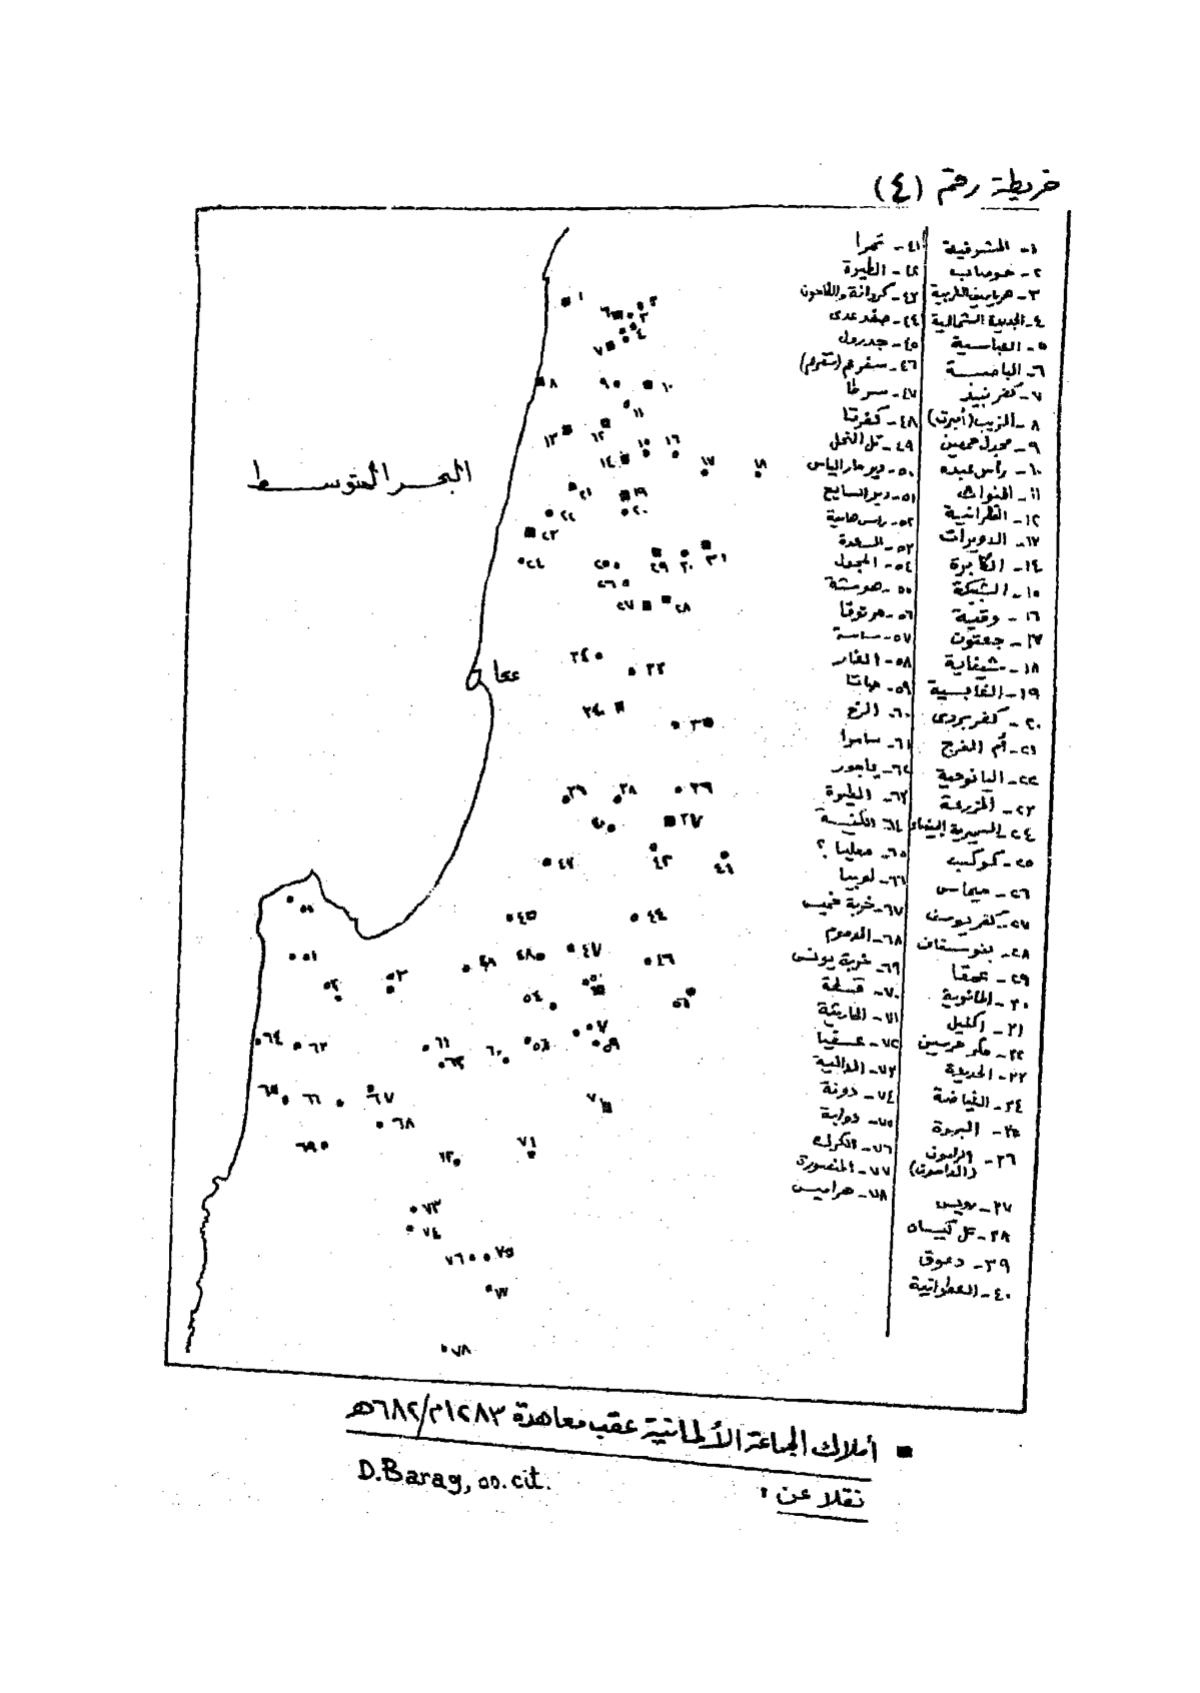 خريطة رقم (٤)
١- المشرفية
٢- حومصاب
٤- الجديدة الشمالية
٥- العباسية
٦- الباصسة
٧- كفرنبيذ
٨- الزيب (أمبرت)
٩- مجدل حمصين
١٠- رأس عبده
١١- المنوات
١٢- الطرانية
١٤- الكابرة
١٥- الشبكة
١٦- وقية
١٧- جعتون
١٨- شيفاية
١٩- الغابسية
٢٠- كفر بردى
٢١- أم الفرج
٢٢- اليانوحية
٢٣- المزرعة
٢٤- السميرية البيضاء
٢٥- كوكب
٢٦- ميماس
٢٧- كفر يوسف
٢٨- بنوستاف
٢٩- عمقا
٣٠- المانوية
٣١- اكليل
٣٢- مكر حرسين
٣٣- الجديدة
٣٤- الفياضة
٣٥- البروة
٣٦- الرامون (الدامون)
٣٧- رويس
٣٨- تل كيسان
٣٩- دعوق
٤٠- العطوانية
٤١- تمرا
٤٢- الطيرة
٤٣- كردانة والطاحون
٤٤- صفد عدى
٤٥- جدرول
٤٦- سفرعم (شفرعم)
٤٧- سرطا
٤٨- كفرتا
٤٩- تل النحل
٥٠- دير مار الياس
٥١- دير السايح
٥٣- السعدة
٥٤- المجدل
٥٥- هوشة
٥٦- هرتوفا
٥٧- ساسة
٥٨- الغار
٦٠- الرخ
٦١- سامرا
٦٢- ياجور
٦٣- الطيرة
٦٤- الكنيسة
٦٥- معليا ؟
٦٦- لوبيا
٦٧- خربة خميس
٦٨- الدموم
٦٩- خربة يونس
٧٠- قسطة
٧١- الحارثية
٧٢- عسفيا
٧٣- الدالية
٧٤- دونة
٧٥- دوابة
٧٦- الكرك
٧٧- المنصورة
٧٨- هراميس
البحر المتوسط
عكا
■ أملاك الجماعة الألمانية عقب معاهدة ١٢٨٣م/٦٨٢هـ
نقلا عن :
D.Barag, op.cit.